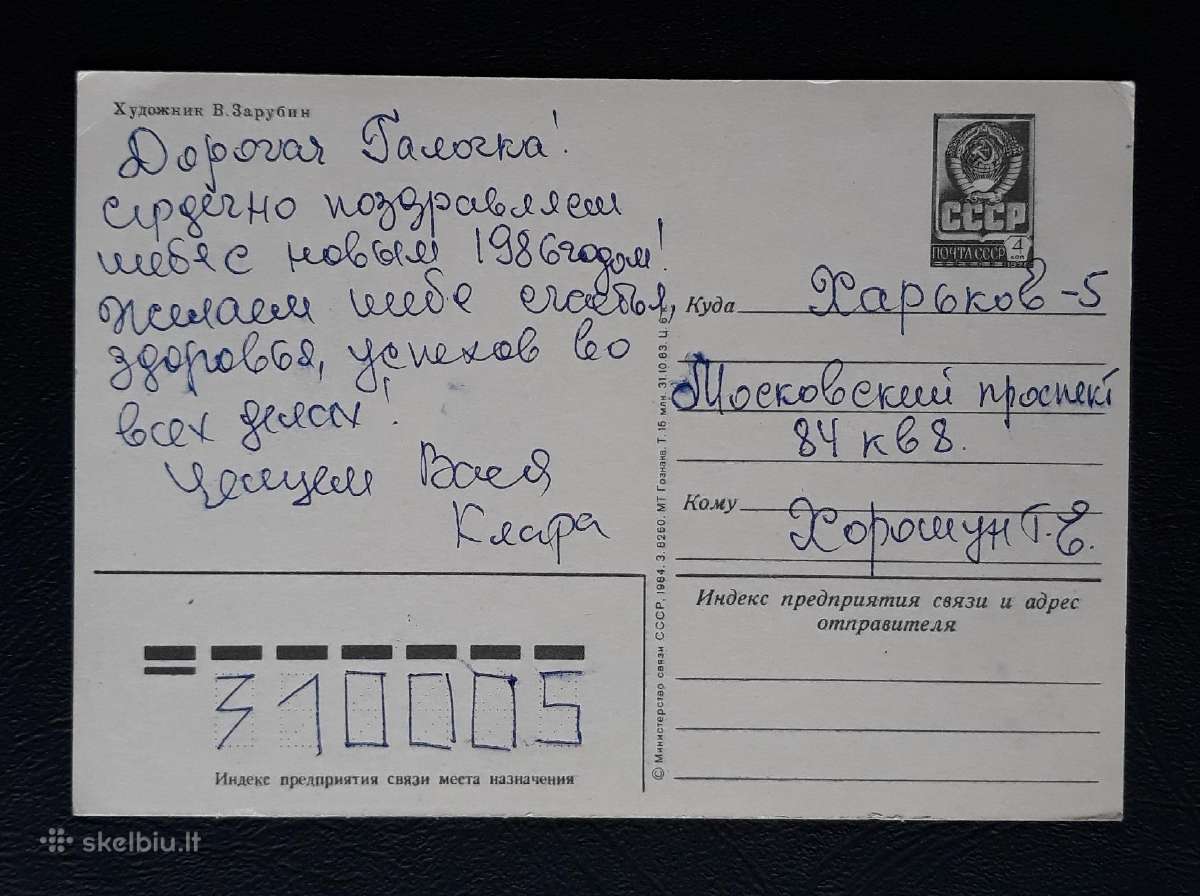 Художник В. Зарубин
Дорогая Галочка!
сердечно поздравляем
тебя с новым 1986 годом!
Желаем тебе счастья,
здоровья, успехов во
всех делах!
Целуем Вася
Клара
СССР
ПОЧТА СССР 4 коп
Куда Харьков-5
Московский проспект
84 кв 8.
Кому Хорошун Г. Е.
Индекс предприятия связи и адрес
отправителя
310005
Индекс предприятия связи места назначения
© Министерство связи СССР, 1984. З. 8260. МТ Гознака. Т. 15 млн. 31.10.83. Ц. 6 к.
skelbiu.lt